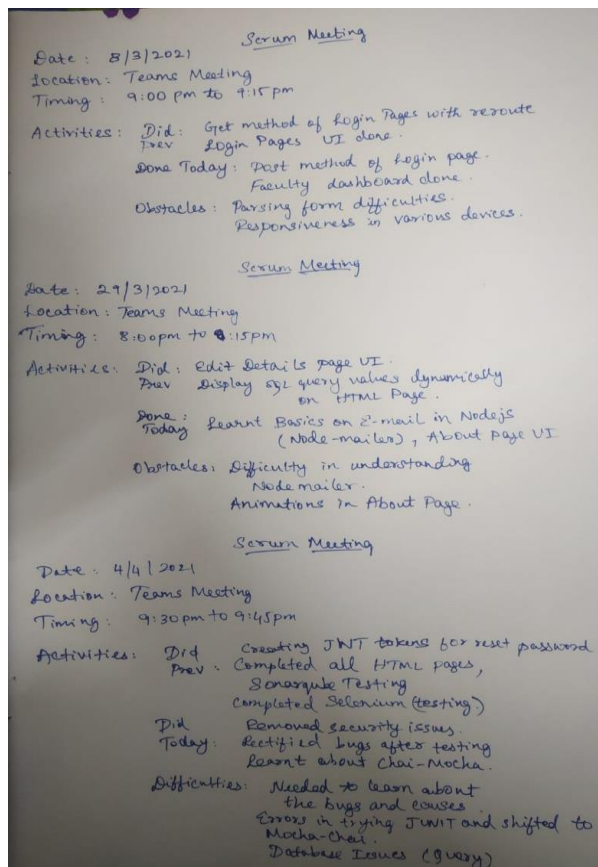 Scrum Meeting
Date : 8/3/2021
Location : Teams Meeting
Timing : 9:00 pm to 9:15 pm
Activities : Did : Get method of Login Pages with reroute
Prev Login Pages UI done.
Done Today : Post method of Login page.
Faculty dashboard done.
Obstacles : Parsing form difficulties.
Responsiveness in various devices.
Scrum Meeting
Date : 29/3/2021
Location : Teams Meeting
Timing : 8:00pm to 8:15pm
Activities : Did : Edit Details page UI.
Prev Display SQL query values dynamically
on HTML Page.
Done :
Today Learnt Basics on E-mail in Nodejs
(Node-mailer), About page UI
Obstacles : Difficulty in understanding
Nodemailer.
Animations in About Page.
Scrum Meeting
Date : 4/4/2021
Location : Teams Meeting
Timing : 9:30pm to 9:45pm
Activities : Did Creating JWT tokens for reset password
Prev : Completed all HTML pages,
Sonarqube Testing
Completed Selenium (testing)
Did Removed security issues.
Today : Rectified bugs after testing
Learnt about Chai-Mocha.
Difficulties : Needed to learn about
the bugs and causes.
Errors in trying JUNIT and shifted to
Mocha-Chai.
Database Issues (Query)